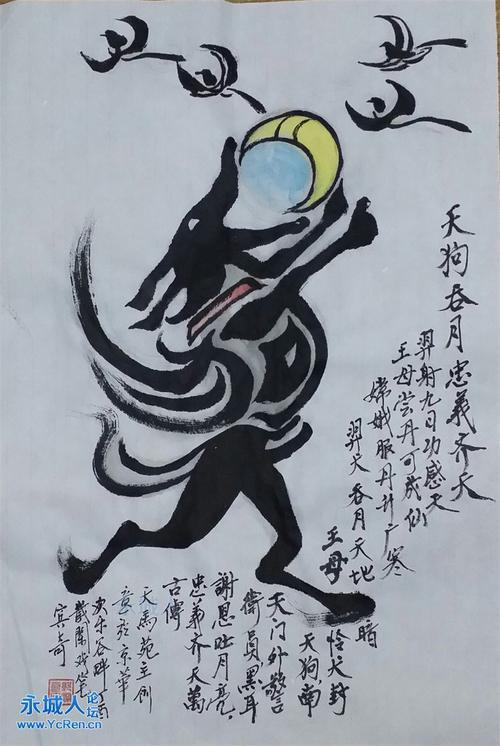 天狗吞月忠義齐天
羿射九日功感天
王母尝丹可成仙
嫦娥服丹广寒
羿犬吞月天地
暗
王母
怜犬封
天狗,南
天门外警
衛員黑耳
謝恩吐月亮,
忠義齐天萬
古傳
天馬苑主創
意於京華
乐谷畔丁酉
笔
永城人论坛
www.YcRen.cn